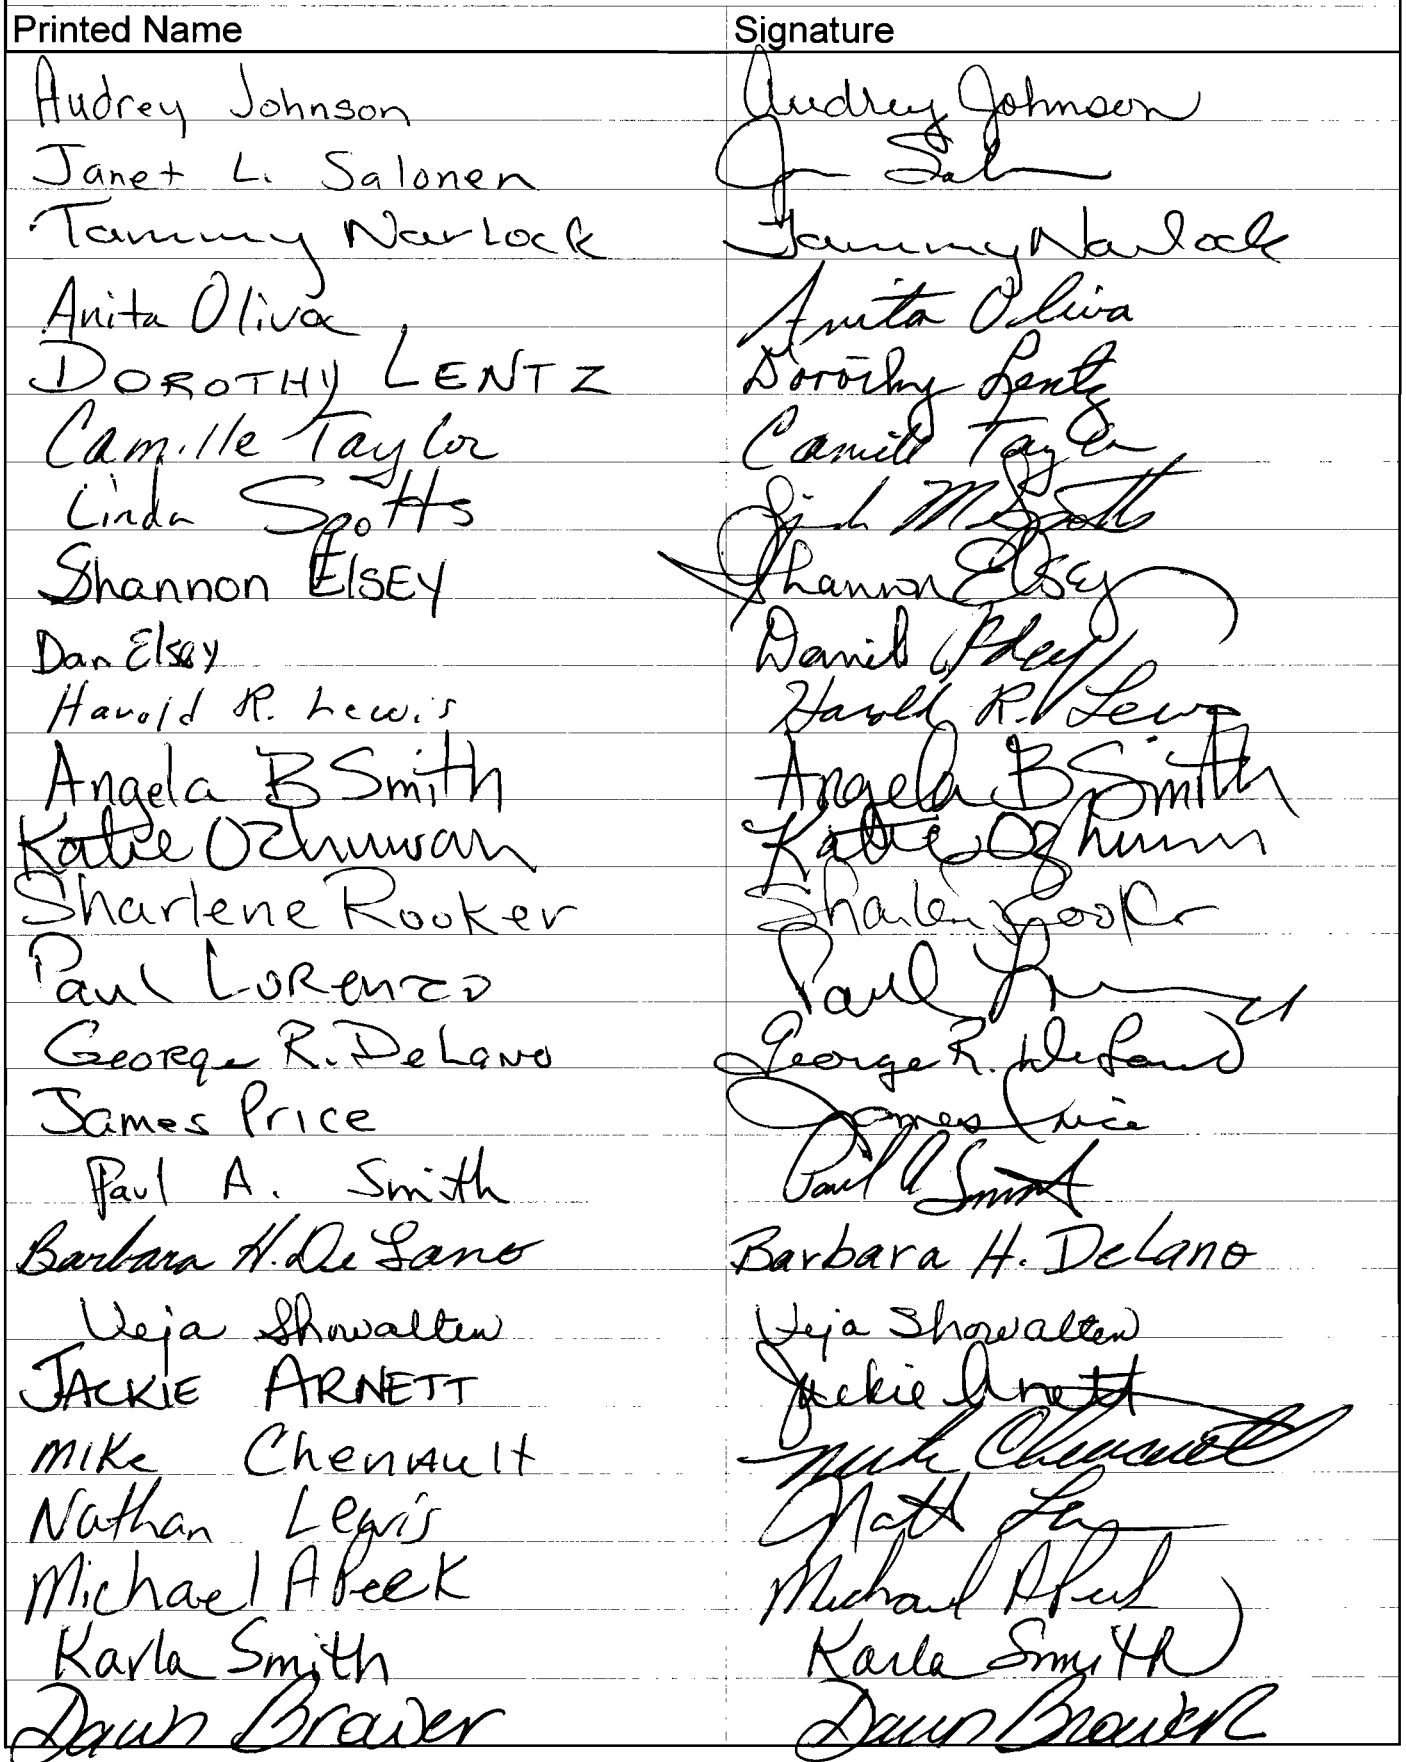 Printed Name Signature
Audrey Johnson Audrey Johnson
Janet L. Salonen
Tammy Narlock Tammy Narlock
Anita Oliva Anita Oliva
DOROTHY LENTZ Dorothy Lentz
Camille Taylor Camille Taylor
Linda Spotts Linda M Spotts
Shannon ElSEY Shannon Elsey
Dan Elsey Daniel Elsey
Harold R. Lewis Harold R. Lewis
Angela B Smith Angela B Smith
Katie Katie
Sharlene Rooker Sharlene Rooker
Paul LORENZO Paul
George R. DeLano George R. DeLano
James Price James Price
Paul A. Smith Paul A Smith
Barbara H. DeLano Barbara H. DeLano
Veja Showalter Veja Showalter
JACKIE ARNETT Jackie Arnett
Mike Chenault Mike Chenault
Nathan Lewis
Michael A Peek Michael A Peek
Karla Smith Karla Smith
Dawn Brower Dawn Brower